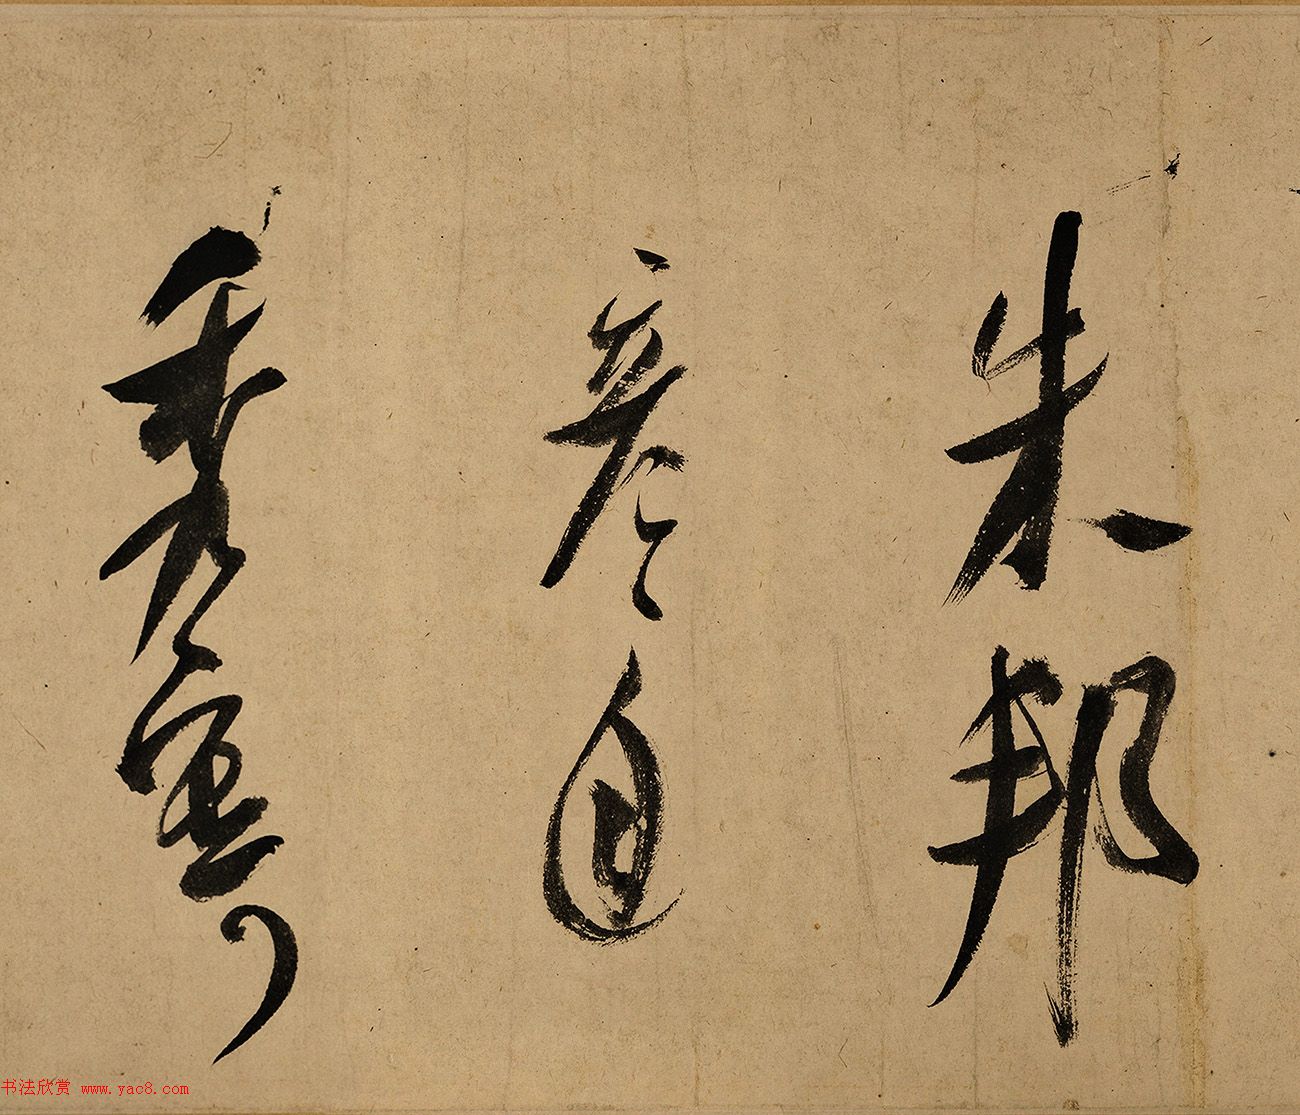 朱邦
彦自
秦寄
书法欣赏 www.yac8.com